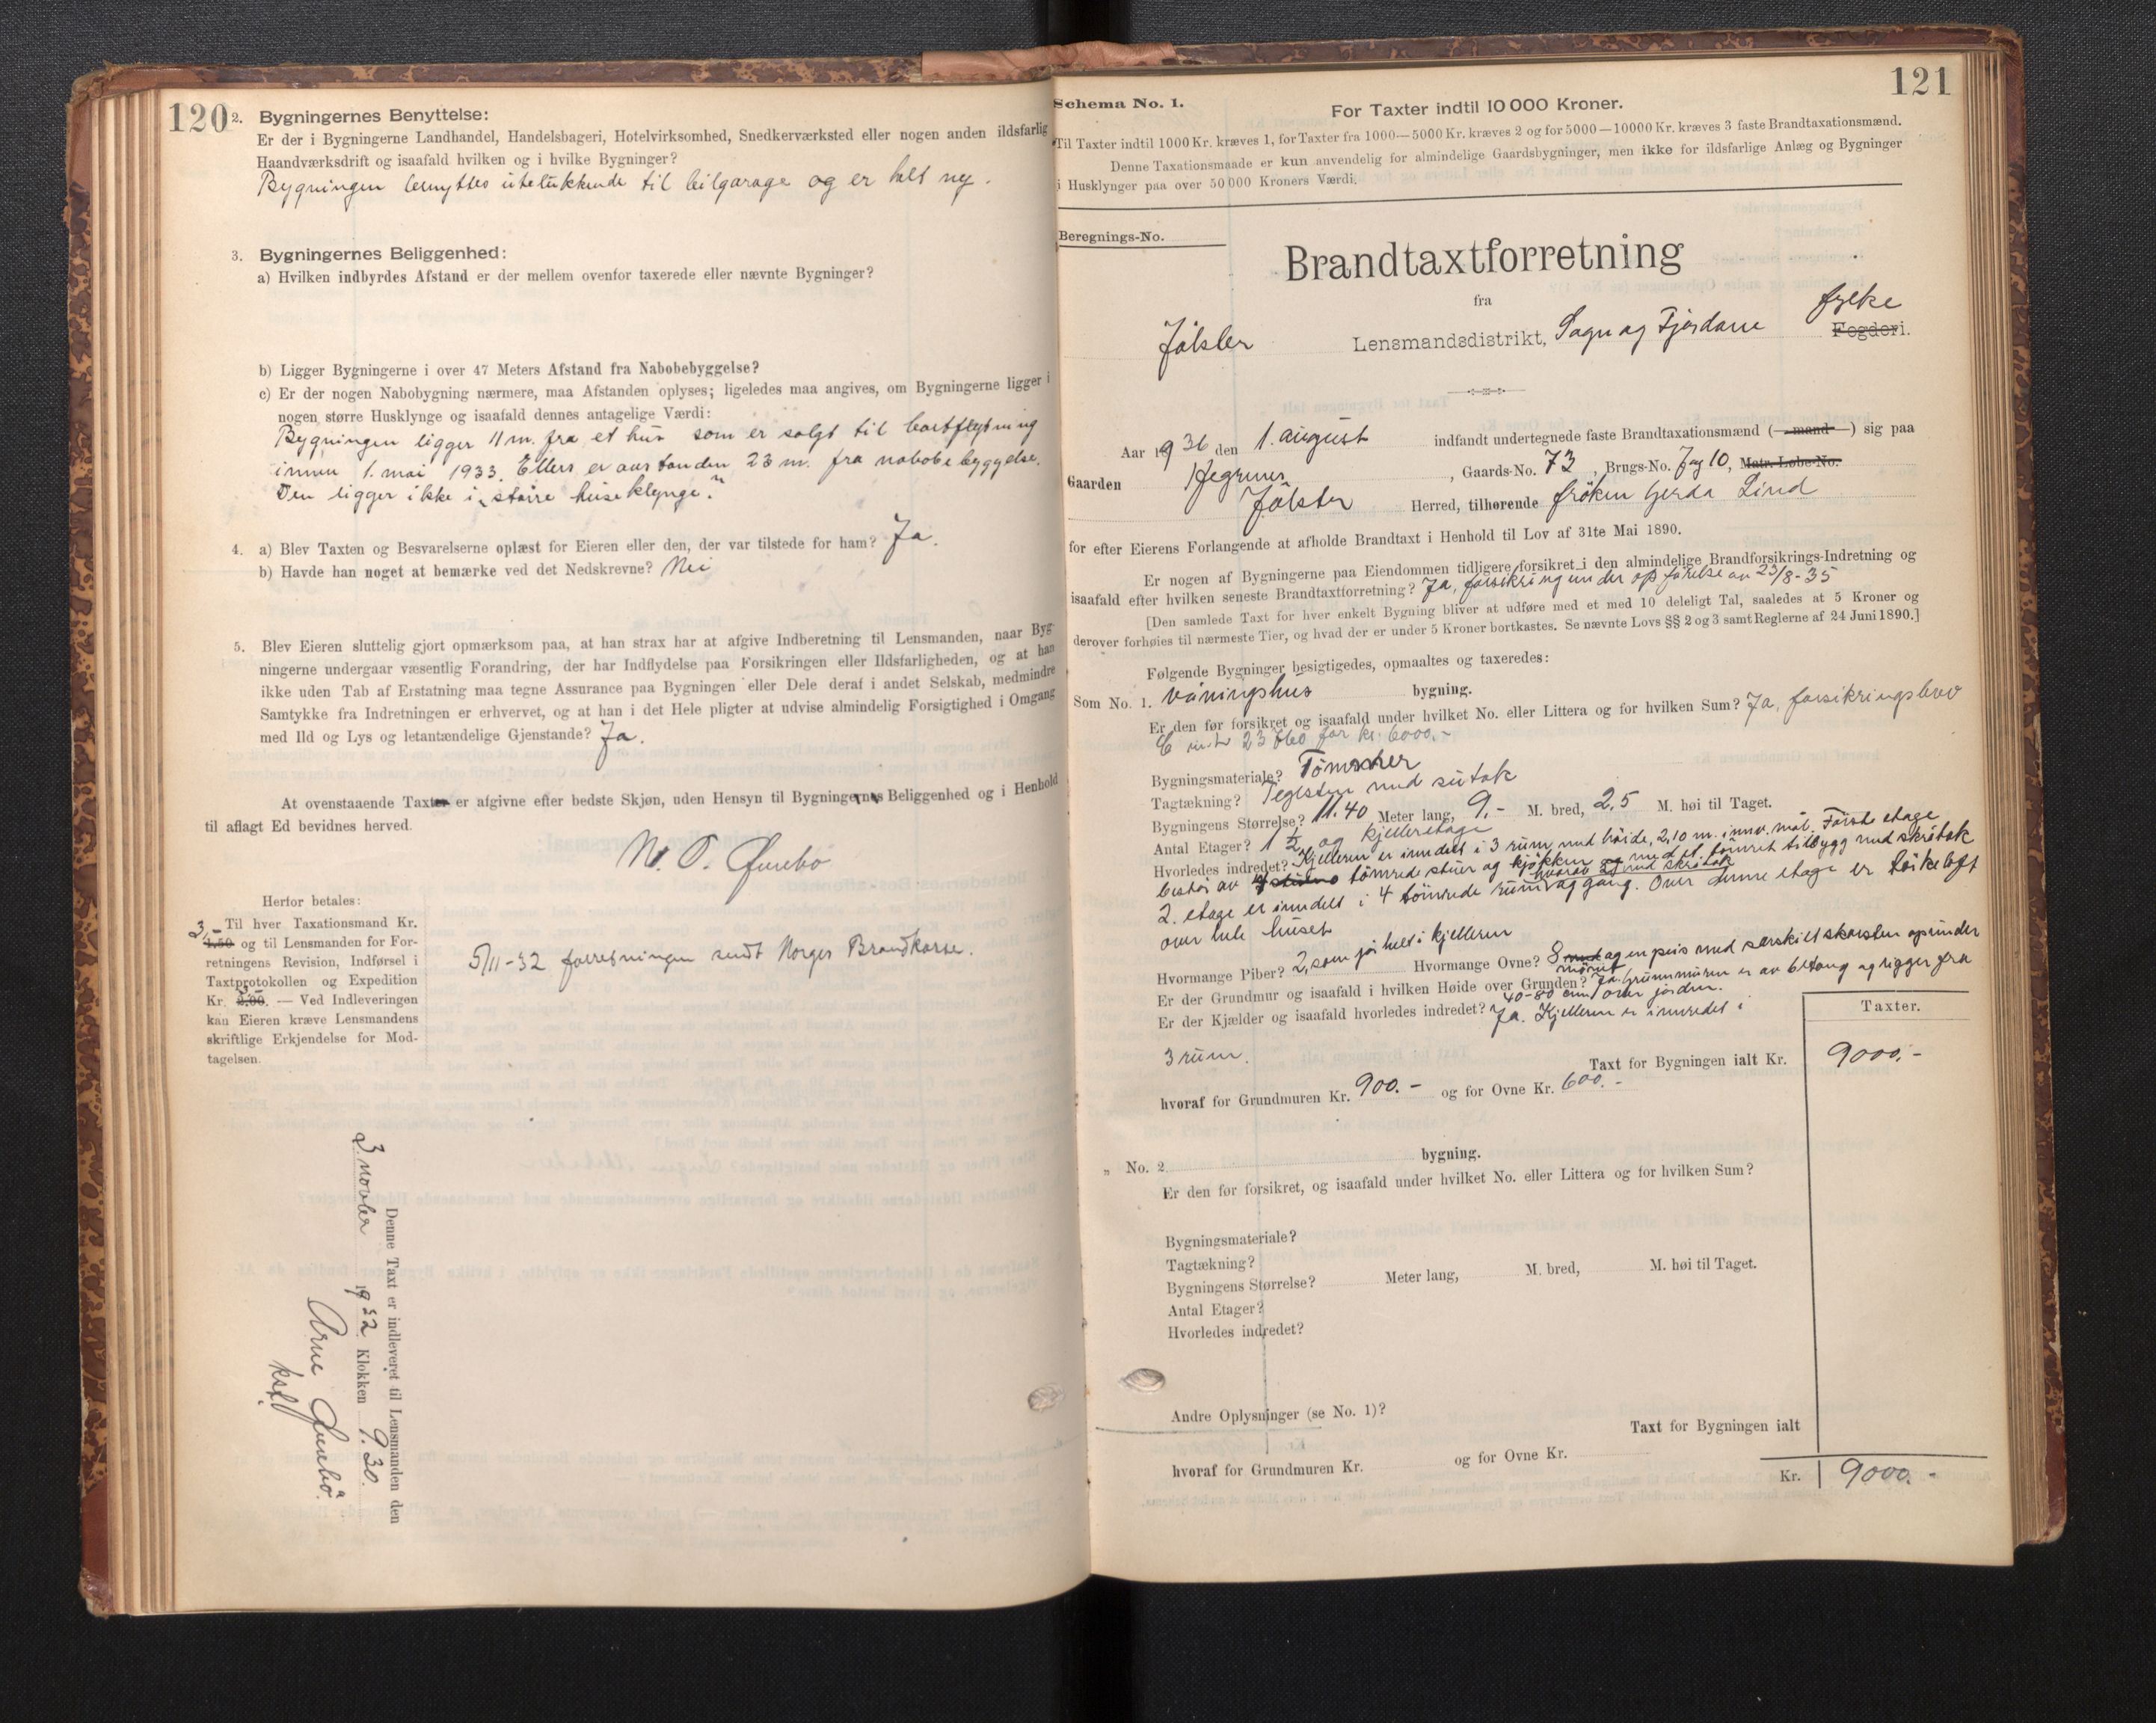 120
2. Bygningernes Benyttelse:
Er der i Bygningerne Landhandel, Handelsbageri, Hotelvirksomhed, Snedkerværksted eller nogen anden ildsfarlig
Haandværksdrift og isaafald hvilken og i hvilke Bygninger?
Bygningen benyttes utelukkende til bilgarage og er helt ny.
3. Bygningernes Beliggenhed:
a) Hvilken indbyrdes Afstand er der mellem ovenfor taxerede eller nævnte Bygninger?
b) Ligger Bygningerne i over 47 Meters Afstand fra Nabobebyggelse?
c) Er der nogen Nabobygning nærmere, maa Afstanden oplyses; ligeledes maa angives, om Bygningerne ligger i
nogen større Husklynge og isaafald dennes antagelige Værdi:
Bygningen ligger 11 m. fra et hus som er solgt til bortflytning
innen 1. mai 1933. Ellers er avstanden 23 m. fra nabobebyggelse.
Den ligger ikke i "større huseklynge".
4. a) Blev Taxten og Besvarelserne oplæst for Eieren eller den, der var tilstede for ham? Ja.
b) Havde han noget at bemærke ved det Nedskrevne? Nei
5. Blev Eieren sluttelig gjort opmærksom paa, at han strax har at afgive Indberetning til Lensmanden, naar Byg-
ningerne undergaar væsentlig Forandring, der har Indflydelse paa Forsikringen eller Ildsfarligheden, og at han
ikke uden Tab af Erstatning maa tegne Assurance paa Bygningen eller Dele deraf i andet Selskab, medmindre
Samtykke fra Indretningen er erhvervet, og at han i det Hele pligter at udvise almindelig Forsigtighed i Omgang
med Ild og Lys og letantændelige Gjenstande? Ja.
At ovenstaaende Taxter er afgivne efter bedste Skjøn, uden Hensyn til Bygningernes Beliggenhed og i Henhold
til aflagt Ed bevidnes herved.
Herfor betales:
3,- Til hver Taxationsmand Kr.
1.50 og til Lensmanden for For-
retningens Revision, Indførsel i
Taxtprotokollen og Expedition
Kr. 2.00. — Ved Indleveringen
kan Eieren kræve Lensmandens
skriftlige Erkjendelse for Mod-
tagelsen.
5/11-32 forretningen sendt Norges Brandkasse.
Denne Taxt er indleveret til Lensmanden den
3 novbr 1932 Klokken 9.30.
Arne
ksf.
121
Schema No. 1.
For Taxter indtil 10 000 Kroner.
Til Taxter indtil 1000 Kr. kræves 1, for Taxter fra 1000—5000 Kr. kræves 2 og for 5000—10000 Kr. kræves 3 faste Brandtaxationsmænd.
Denne Taxationsmaade er kun anvendelig for almindelige Gaardsbygninger, men ikke for ildsfarlige Anlæg og Bygninger
i Husklynger paa over 50 000 Kroners Værdi.
Beregnings-No.
Brandtaxtforretning
fra
Jølster Lensmandsdistrikt, Sogn og Fjordane fylke Fogderi.
Aar 1936 den 1. august indfandt undertegnede faste Brandtaxationsmænd (—mand—) sig paa
Gaarden , Gaards-No. 73, Brugs-No. 7 og 10, Matr. Løbe-No.
Jølster Herred, tilhørende frøken Gerda Lind
for efter Eierens Forlangende at afholde Brandtaxt i Henhold til Lov af 31te Mai 1890.
Er nogen af Bygningerne paa Eiendommen tidligere forsikret i den almindelige Brandforsikrings-Indretning og
isaafald efter hvilken seneste Brandtaxtforretning? Ja, forsikring under opførelse av 23/8-35
[Den samlede Taxt for hver enkelt Bygning bliver at udføre med et med 10 deleligt Tal, saaledes at 5 Kroner og
derover forhøies til nærmeste Tier, og hvad der er under 5 Kroner bortkastes. Se nævnte Lovs §§ 2 og 3 samt Reglerne af 24 Juni 1890.]
Følgende Bygninger besigtigedes, opmaaltes og taxeredes:
Som No. 1. våningshus bygning.
Er den før forsikret og isaafald under hvilket No. eller Littera og for hvilken Sum? Ja, forsikringsbrev
for kr. 6000,-
Bygningsmateriale? Tømmer
Tagtækning? Teglsten med sutak
Bygningens Størrelse? 11.40 Meter lang, 9,- M. bred, 2,5 M. høi til Taget.
Antal Etager? 1 1/2 og kjelleretage
Hvorledes indredet? Kjelleren er inndelt i 3 rum med høide, 2,10 m. innv. mål. Første etage
består av tømrede stuer og kjøkken og med et tømret tilbygg med skråtak
hvorav 2 med skråtak
2. etage er inndelt i 4 tømrede rum og gang. Over denne etage er tørkeloft
over hele huset
Hvormange Piber? 2, som går helt i kjelleren Hvormange Ovne? 8 og en peis med særskilt skorsten
Er der Grundmur og isaafald i hvilken Høide over Grunden? Ja. Grunnmuren er av betong og ligger fra
40-80 cm. over jorden.
Er der Kjælder og isaafald hvorledes indredet? Ja. Kjelleren er innredet i
3 rum.
Taxter.
Taxt for Bygningen ialt Kr. 9000.-
hvoraf for Grundmuren Kr. 900.- og for Ovne Kr. 600.-
„ No. 2 bygning.
Er den før forsikret, og isaafald under hvilket No. eller Littera og for hvilken Sum?
Bygningsmateriale?
Tagtækning?
Bygningens Størrelse? Meter lang, M. bred, M. høi til Taget.
Antal Etager?
Hvorledes indredet?
Andre Oplysninger (se No. 1)?
Taxt for Bygningen ialt
hvoraf for Grundmuren Kr. og for Ovne Kr.
Kr. 9000.-